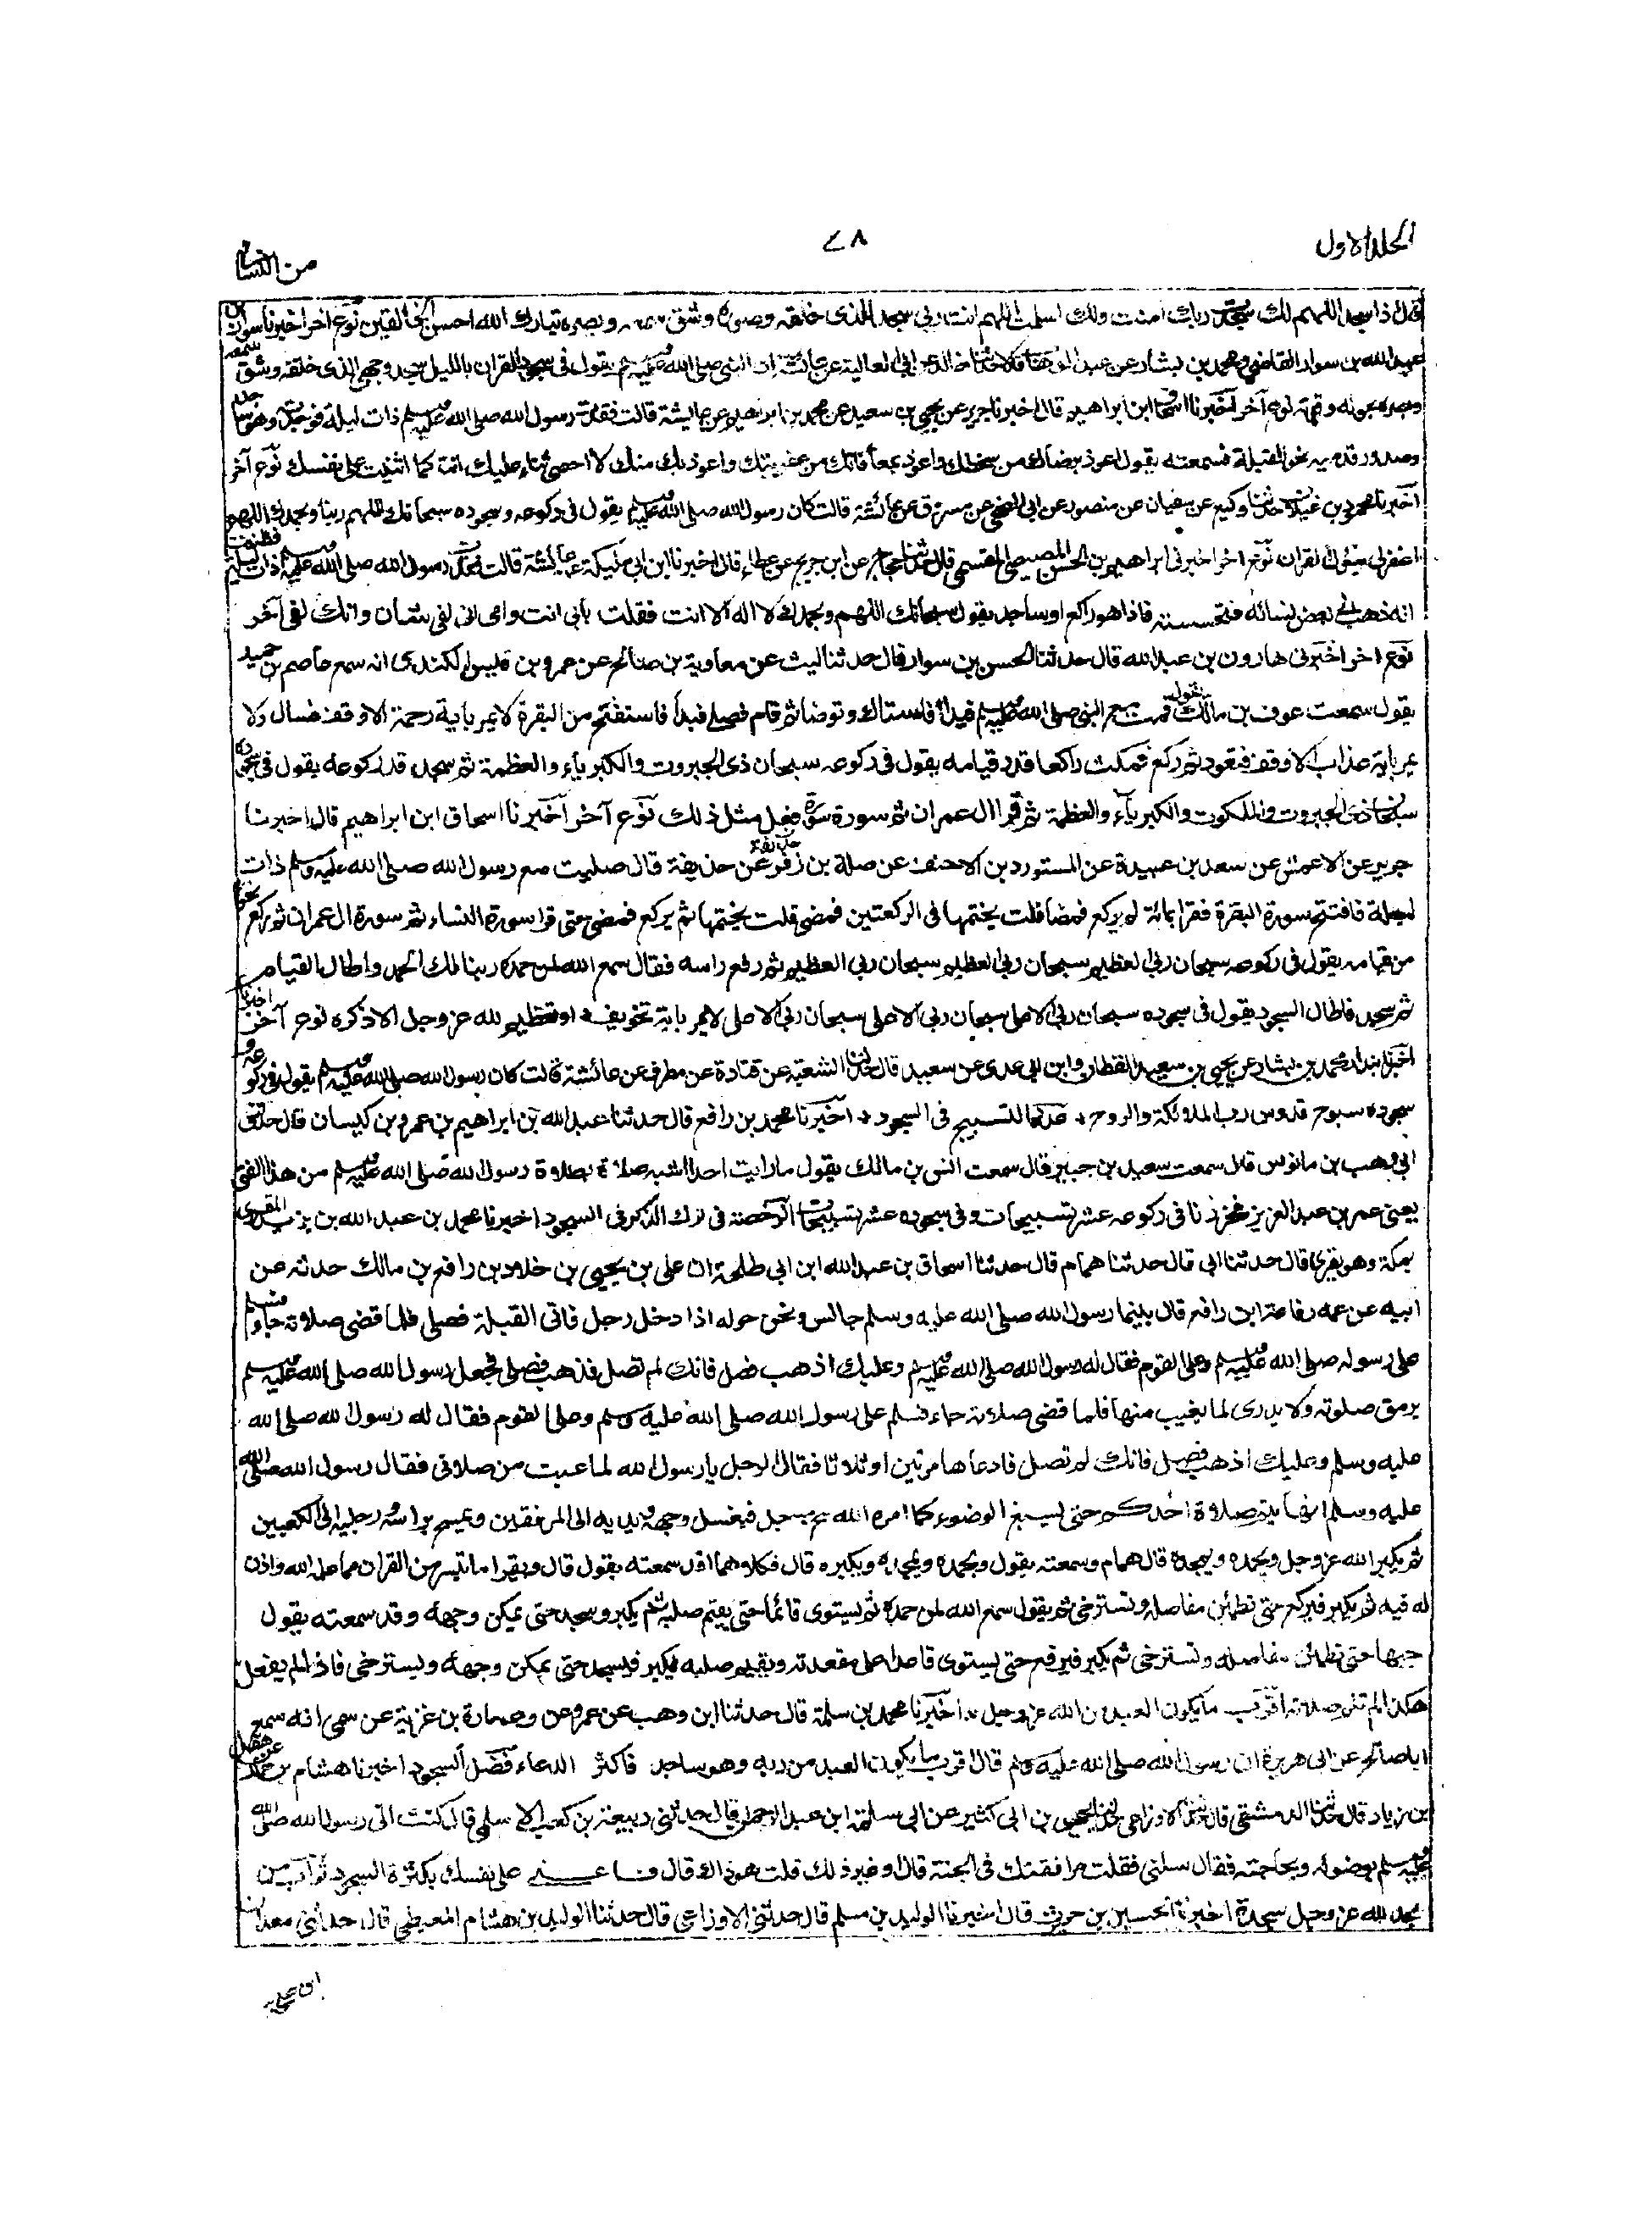 الجلد الاول
٧٨
من النسائی
اذا سجد اللهم لك سجدت وبك امنت ولك اسلمت اللهم انت ربی سجد للذی خلقه وصوره وشق سمعه وبصره تبارك الله احسن الخالقین نوع اخر اخبرنا سوار بن
عبد الله بن سوار القاضی ومحمد بن بشار عن عبد الوهاب قالا حدثنا خالد عن ابی العالیة عن عائشة ان النبی صلی الله علیه وسلم یقول فی سجود القران باللیل سجد وجهی للذی خلقه وشق سمعه
وبصره بحوله وقوته نوع آخر اخبرنا اسحاق ابن ابراهیم قال اخبرنا جریر عن یحیی بن سعید عن محمد بن ابراهیم عن عائشة قالت فقدت رسول الله صلی الله علیه وسلم ذات لیلة فوجدته وهو ساجد
وصدور قدمیه نحو القبلة فسمعته یقول اعوذ برضاك من سخطك واعوذ بمعافاتك من عقوبتك واعوذ بك منك لا احصی ثناء علیك انت كما اثنیت علی نفسك نوع آخر
اخبرنا محمود بن غیلان حدثنا وكیع عن سفیان عن منصور عن ابی الضحی عن مسروق عن عائشة قالت كان رسول الله صلی الله علیه وسلم یقول فی ركوعه وسجوده سبحانك اللهم ربنا وبحمدك اللهم
اغفر لی یتأول القران نوع اخر اخبرنی ابراهیم بن الحسن المصیصی المقسمی قال حدثنا حجاج عن ابن جریج عن عطاء قال اخبرنا ابن ابی ملیكة عن عائشة قالت فقدت رسول الله صلی الله علیه وسلم ذات لیلة فظننت
انه ذهب الی بعض نسائه فتحسسته فاذا هو راكع او ساجد یقول سبحانك اللهم وبحمدك لا اله الا انت فقلت بابی انت وامی انی لفی شأن وانك لفی آخر
نوع اخر اخبرنی هارون بن عبد الله قال حدثنا الحسن بن سوار قال حدثنا لیث عن معاویة بن صالح عن عمرو بن قیس الكندی انه سمع عاصم بن حمید
یقول سمعت عوف بن مالك یقول قمت مع النبی صلی الله علیه وسلم فبدأ فاستاك وتوضأ ثم قام فصلی فبدأ فاستفتح من البقرة لا یمر بایة رحمة الا وقف فسال ولا
یمر بایة عذاب الا وقف فتعوذ ثم ركع فمكث راكعا قدر قیامه یقول فی ركوعه سبحان ذی الجبروت والكبریاء والعظمة ثم سجد قدر ركوعه یقول فی سجوده
سبحان ذی الجبروت والملكوت والكبریاء والعظمة ثم قرا ال عمران ثم سورة سورة فعل مثل ذلك نوع آخر اخبرنا اسحاق ابن ابراهیم قال اخبرنا
جریر عن الاعمش عن سعد بن عبیدة عن المستورد بن الاحنف عن صلة بن زفر عن حذیفة قال صلیت مع رسول الله صلی الله علیه وسلم ذات
لیلة فافتتح سورة البقرة فقرا بمائة لم یركع فمضا قلت یختمها فی الركعتین فمضی قلت یختمها ثم یركع فمضی حتی قرا سورة النساء ثم سورة ال عمران ثم ركع نحوا
من قیامه یقول فی ركوعه سبحان ربی العظیم سبحان ربی العظیم سبحان ربی العظیم ثم رفع راسه فقال سمع الله لمن حمده ربنا لك الحمد واطال القیام
ثم سجد فاطال السجود یقول فی سجوده سبحان ربی الاعلی سبحان ربی الاعلی سبحان ربی الاعلی لا یمر بایة تخویف او تعظیم لله عز وجل الا ذكره نوع آخر
اخبرنا بندار محمد بن بشار عن یحیی بن سعید القطان وابن ابی عدی عن سعید قال حدثنا الشعبة عن قتادة عن مطرف عن عائشة قالت كان رسول الله صلی الله علیه وسلم یقول فی ركوعه و
سجوده سبوح قدوس رب الملائكة والروح عدد التسبیح فی السجود اخبرنا محمد بن رافع قال حدثنا عبد الله بن ابراهیم بن عمرو بن كیسان قال حدثنی
ابی وهب بن مانوس قال سمعت سعید بن جبیر قال سمعت انس بن مالك یقول ما رایت احدا اشبه صلاة بصلاة رسول الله صلی الله علیه وسلم من هذا الفتی
یعنی عمر بن عبد العزیز فحزرنا فی ركوعه عشر تسبیحات وفی سجوده عشر تسبیحات الرخصة فی ترك الذكر فی السجود اخبرنا محمد بن عبد الله بن یزید المقری
بمكة وهو بقری قال حدثنا ابی قال حدثنا همام قال حدثنا اسحاق بن عبد الله ابن ابی طلحة ان علی بن یحیی بن خلاد بن رافع بن مالك حدثه عن
ابیه عن عمه رفاعة ابن رافع قال بینما رسول الله صلی الله علیه وسلم جالس ونحن حوله اذا دخل رجل فاتی القبلة فصلی فلما قضی صلاته جاء فسلم
علی رسوله صلی الله علیه وسلم وعلی القوم فقال له رسول الله صلی الله علیه وسلم وعلیك اذهب فصل فانك لم تصل فذهب فصلی فجعل رسول الله صلی الله علیه وسلم
یرمق صلوته ولا یدری لما یعیب منها فلما قضی صلاته جاء فسلم علی رسول الله صلی الله علیه وسلم وعلی القوم فقال له رسول الله صلی الله
علیه وسلم وعلیك اذهب فصل فانك لم تصل فادعاها مرتین او ثلاثا فقال الرجل یا رسول الله لما عبت من صلاتی فقال رسول الله صلی الله
علیه وسلم انها لم یتم صلاة احدكم حتی یسبغ الوضوء كما امره الله عز وجل فیغسل وجهه ویدیه الی المرفقین ویمسح براسه ورجلیه الی الكعبین
ثم یكبر الله عز وجل ویحمده ویمجده قال همام وسمعته یقول ویحمده ویمجده ویكبره قال فكلاهما قد سمعته یقول قال ویقرا ما تیسر من القران مما علمه الله واذن
له فیه ثم یكبر فیركع حتی تطمئن مفاصله وتسترخی ثم یقول سمع الله لمن حمده ثم یستوی قائما حتی یقیم صلبه ثم یكبر ویسجد حتی یمكن وجهه وقد سمعته یقول
جبهته حتی تطمئن مفاصله وتسترخی ثم یكبر فیرفع حتی یستوی قاعدا علی مقعدته ویقیم صلبه ثم یكبر فیسجد حتی یمكن وجهه ویسترخی فاذا لم یفعل
هكذا لم تتم صلاته اقرب ما یكون العبد من الله عز وجل اخبرنا محمد بن سلمة قال حدثنا ابن وهب عن عمرو عن وعمارة بن غزیة عن سمی انه سمع
ابا صالح عن ابی هریرة ان رسول الله صلی الله علیه وسلم قال اقرب ما یكون العبد من ربه وهو ساجد فاكثر الدعاء فضل السجود اخبرنا هشام بن عمار عن هقل
بن زیاد قال حدثنا الدمشقی قال حدثنا الاوزاعی قال حدثنا یحیی بن ابی كثیر عن ابی سلمة ابن عبد الرحمن قال حدثنی ربیعة بن كعب الاسلمی قال كنت اتی رسول الله صلی الله
علیه وسلم بوضوئه وبحاجته فقال سلنی فقلت مرافقتك فی الجنة قال او غیر ذلك قلت هو ذاك قال فاعنی علی نفسك بكثرة السجود ثواب من
سجد لله عز وجل سجدة اخبرنا الحسین بن حریث قال اخبرنا الولید بن مسلم قال حدثنی الاوزاعی قال حدثنا الولید بن هشام المعیطی قال حدثنی معدان